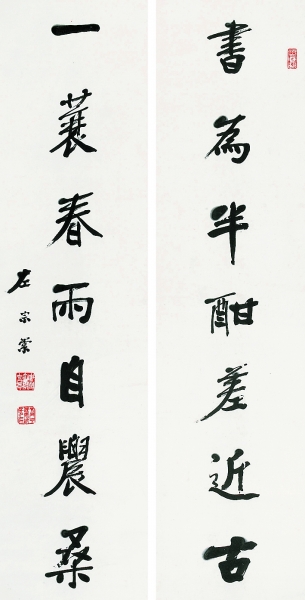 書為半酣差近古
一蓑春雨自農桑
左宗棠